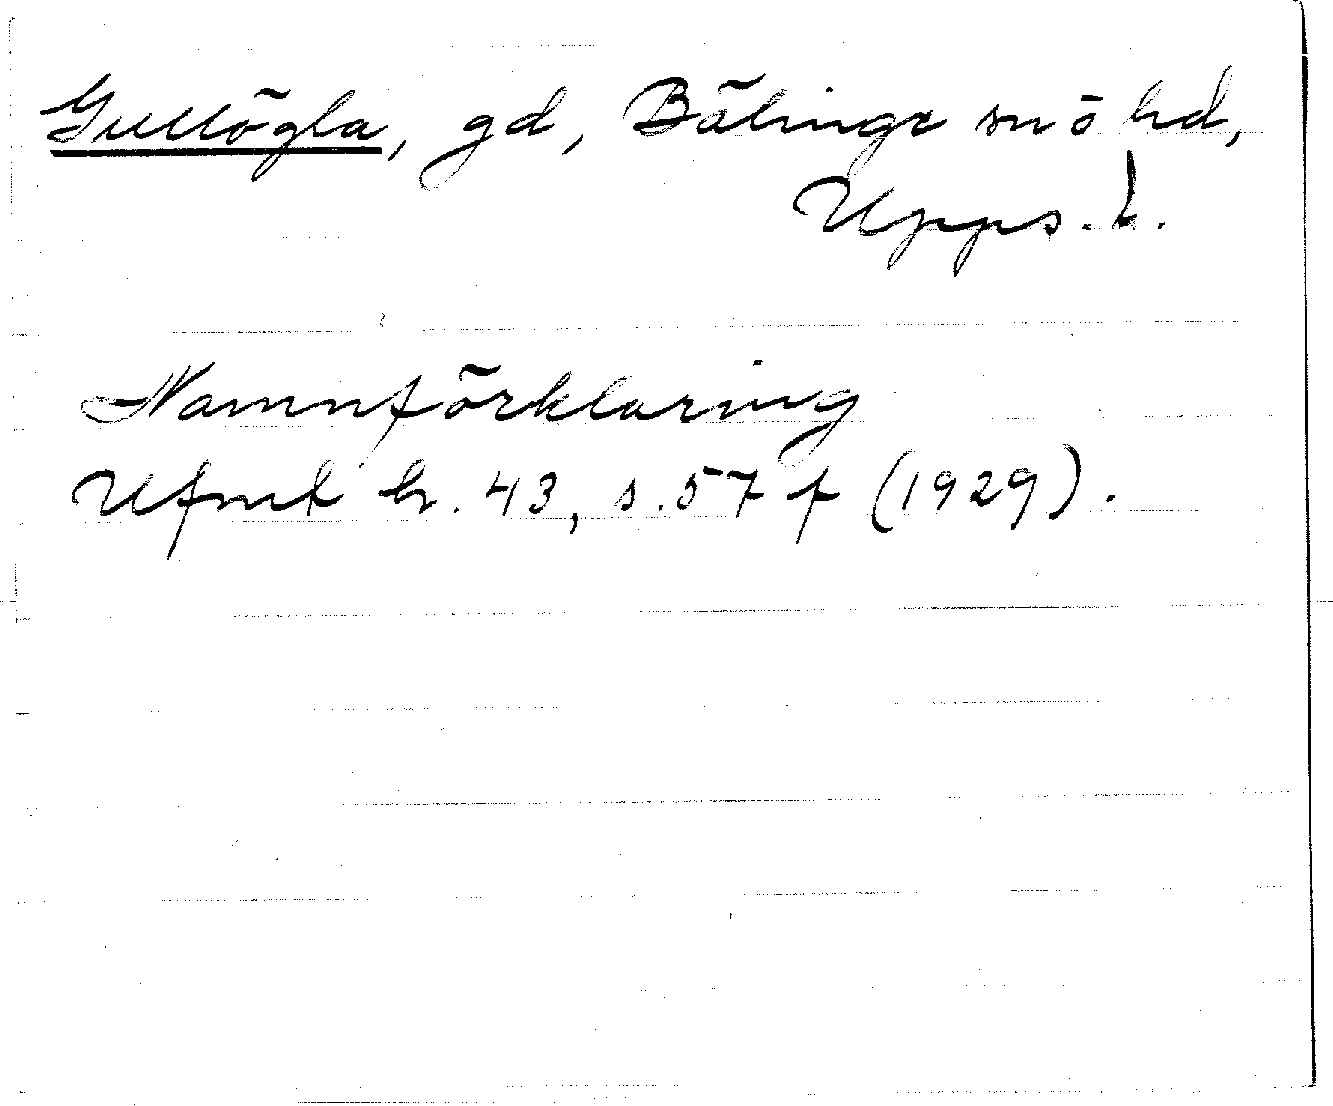 Gullögla, gd, Bälinge sn o hd,
Upps. l.
Namnförklaring
Ufmt h. 43, s. 57 f (1929).